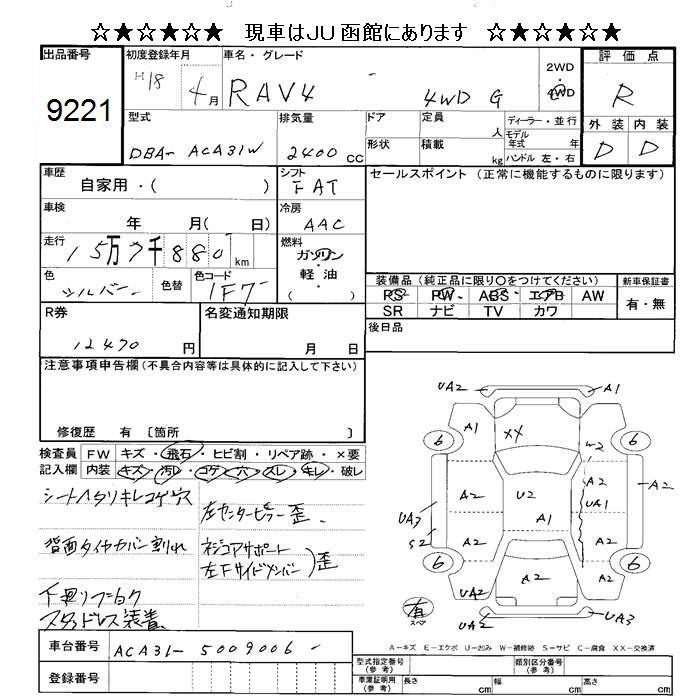 ☆★☆★☆★ 現車はJU函館にあります ☆★☆★☆★
出品番号
9221
初度登録年月
H18 4月
車名・グレード
RAV4 4WD G
2WD
・
4WD
評価点
R
型式
DBA- ACA31W
排気量
2400 CC
ドア
定員
人
形状
積載
kg
ディーラー・並行
モデル
年式 年
ハンドル 左・右
外装 内装
D D
車歴
自家用・( )
シフト
FAT
セールスポイント (正常に機能するものに限ります)
車検
年 月( 日)
冷房
AAC
走行
15万7千880 km
燃料
ガソリン
・
軽油
( )
色
シルバー
色替
色コード
1F7
装備品 (純正品に限り○をつけてください)
PS PW ABS エアB AW
SR ナビ TV カワ
新車保証書
有・無
R券
12470 円
名変通知期限
月 日
後日品
注意事項申告欄 (不具合内容等は具体的に記入して下さい)
修復歴 有 〔箇所 〕
検査員
記入欄
FW キズ・飛石・ヒビ割・リペア跡・×要
内装 キズ・汚レ・コゲ・穴・スレ・キレ・破レ
シートヘタリキレコゲ穴
背面タイヤカバー割れ
下廻りフロク
スタッドレス装着
左センターピラー歪
ラジコアサポート
左Fサイドメンバー
歪
UA2
A1
A1
XX
W2
6
6
A2
U2
UA1
A2
UA3
A1
S2
A2
A2
6
6
UA2
A2
UA2
有
スペア
UA2
UA3
A-キズ E-エクボ U-凹ミ W-補修跡 S-サビ C-腐食 XX-交換済
車台番号
ACA31-5009006-
登録番号
型式指定番号
(参考)
類別区分番号
(参考)
車庫証明用
(参考)
長さ cm
幅 cm
高さ cm